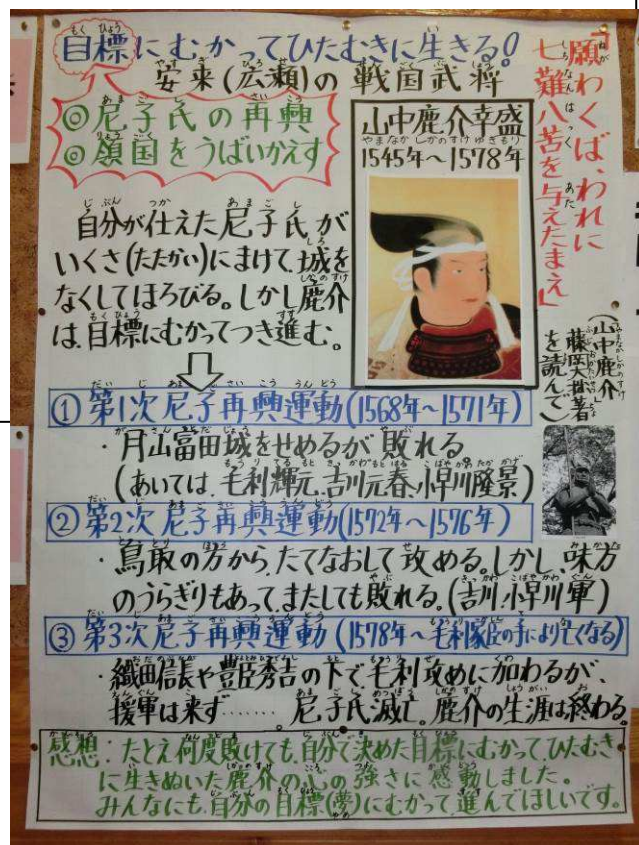 目標にむかってひたむきに生きる!
安来(広瀬)の戦国武将
「願わくば、われに
七難八苦を与えたまえ」
◎尼子氏の再興
◎領国をうばいかえす
山中鹿介幸盛
やまなかしかのすけゆきもり
1545年~1578年
自分が仕えた尼子氏が
いくさ(たたかい)にまけて、城を
なくしてほろびる。しかし鹿介
は、目標にむかってつき進む。
(山中鹿介
藤岡大拙著
を読んで)
①第1次尼子再興運動(1568年~1571年)
・月山富田城をせめるが敗れる
(あいては、毛利輝元、吉川元春、小早川隆景)
②第2次尼子再興運動(1572年~1576年)
・鳥取の方から、たてなおして攻める。しかし、味方
のうらぎりもあって、またしても敗れる。(吉川、小早川軍)
③第3次尼子再興運動(1578年~毛利家臣の手により亡くなる)
・織田信長や豊臣秀吉の下で毛利攻めに加わるが、
援軍は来ず…… 尼子氏滅亡。鹿介の生涯は終わる。
感想:たとえ何度敗けても、自分で決めた目標にむかって、ひたむき
に生きぬいた鹿介の心の強さに感動しました。
みんなにも、自分の目標(夢)にむかって、進んでほしいです。